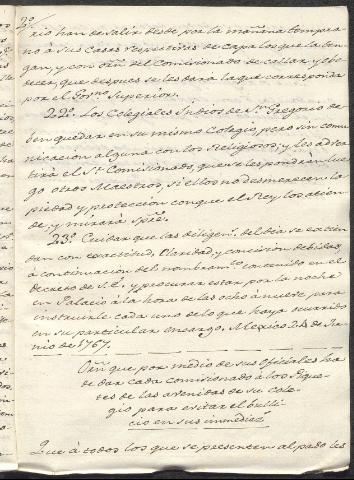 20/
rio han de salir desde por la mañana tempra-
no à sus Casas respectivas de capa los que la ten-
gan, y con orñ del Comisionado de callar y obe-
decer, que despues se les dará la que corresponda
por el Gov.no Superior.
22.a Los Colegiales Indios de Sn. Gregorio de-
ben quedar en su mismo Colegio, pero sin comu-
nicacion alguna con los Religiosos, y les adver-
tirá el Sr. Comisionado, que se les pondrán lue-
go otros Maestros, si ellos no desmerecen la
piedad y proteccion con que el Rey los atien-
de, y mirará spre.
23.a Cuidar que las diligens. del dia se extien-
dan con exactitud, claridad, y concision debidas,
à continuacion del nombramto. contenido en el
decreto de S.E., y procurar estar por la noche
en Palacio à la hora de las ocho à nueve para
instruirle cada uno de lo que haya ocurrido
en su particular encargo. Mexico 24 de Ju-
nio de 1767.
Orñ que por medio de sus oficiales ha
de dar cada comisionado à los Pique-
tes de las avenidas de su cole-
gio para evitar el bulli-
cio en sus inmediaz.
Que à todos los que se presenten al paso les